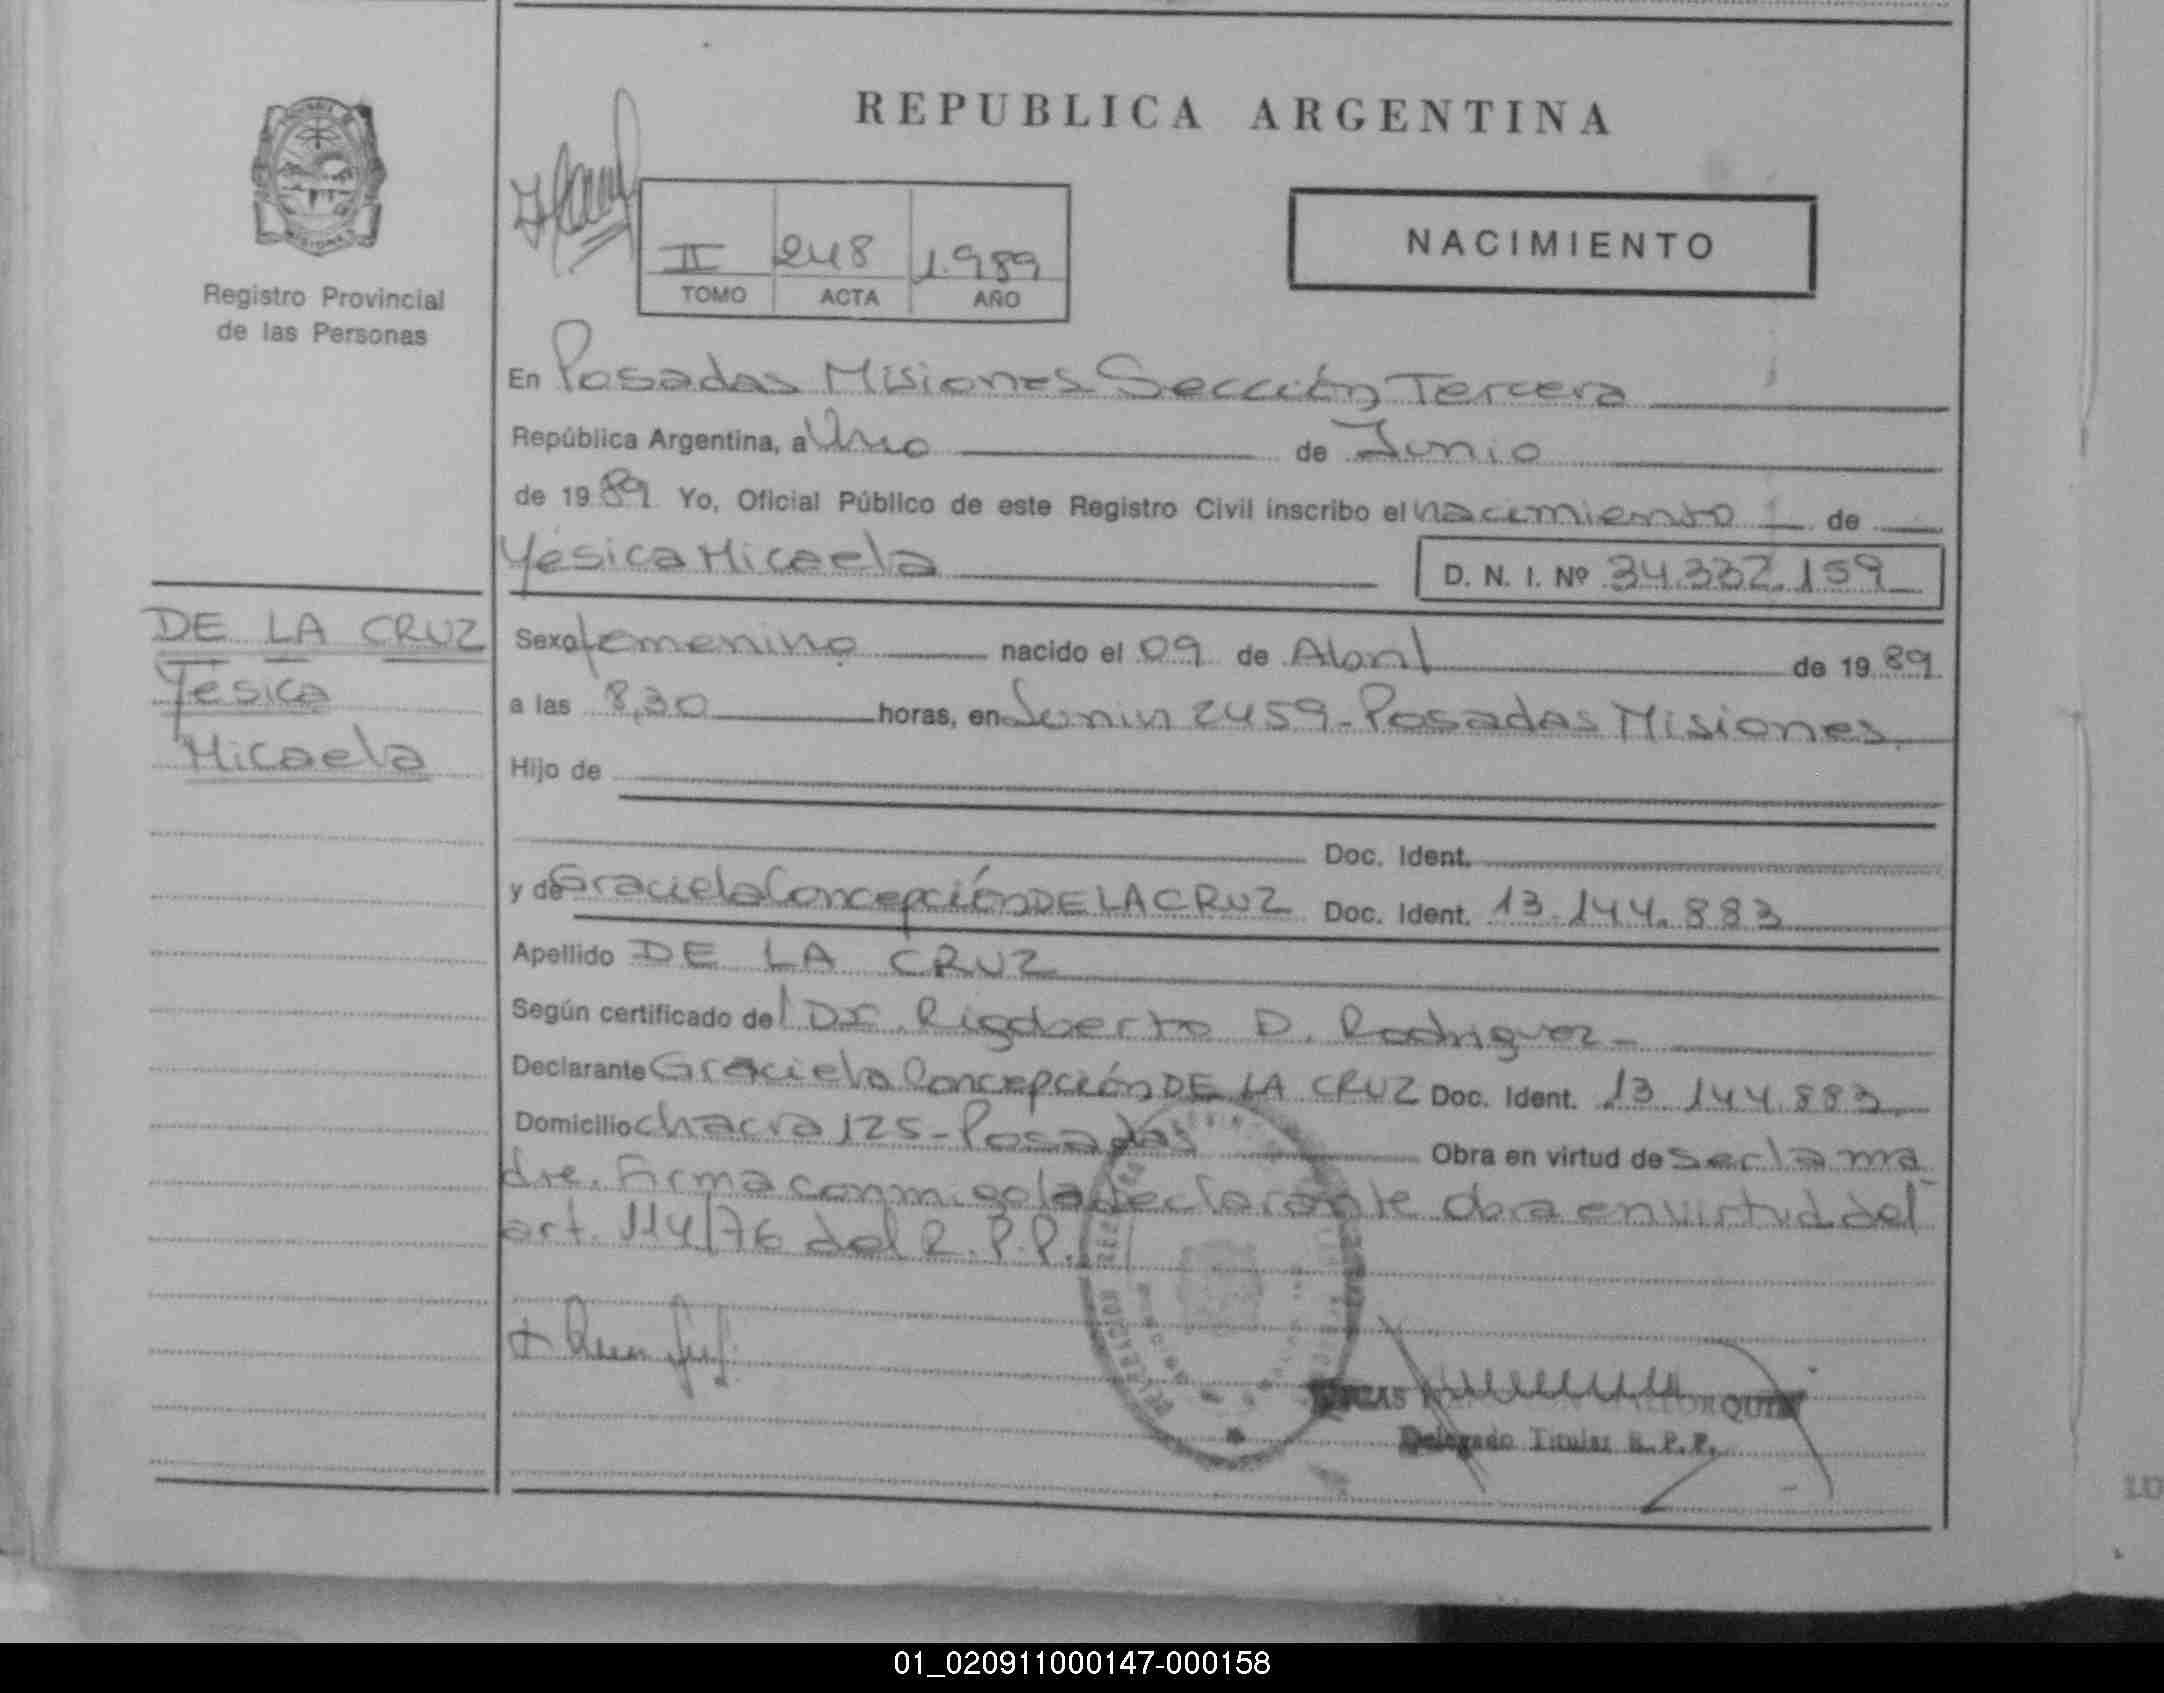 REPUBLICA ARGENTINA
NACIMIENTO
II 248 1.989
TOMO ACTA AÑO
Registro Provincial
de las Personas
En Posadas Misiones Sección Tercera
República Argentina, a Uno de Junio
de 1989 Yo, Oficial Público de este Registro Civil inscribo el nacimiento de
Yesica Micaela D. N. I. Nº 34.332.159
DE LA CRUZ
Yesica
Micaela
Sexo femenino nacido el 09 de Abril de 1989
a las 8,30 horas, en Junin 2459-Posadas Misiones.
Hijo de
Doc. Ident.
y de Graciela Concepción DE LA CRUZ Doc. Ident. 13.144.883
Apellido DE LA CRUZ
Según certificado del Dr. Rigoberto D. Rodriguez-
Declarante Graciela Concepción DE LA CRUZ Doc. Ident. 13.144.883
Domicilio chacra 125-Posadas Obra en virtud de ser la ma
dre. Firma conmigo la declarante obra en virtud del
art. 114/76 del R.P.P.
Delegado Titular R.P.P.
01_020911000147-000158